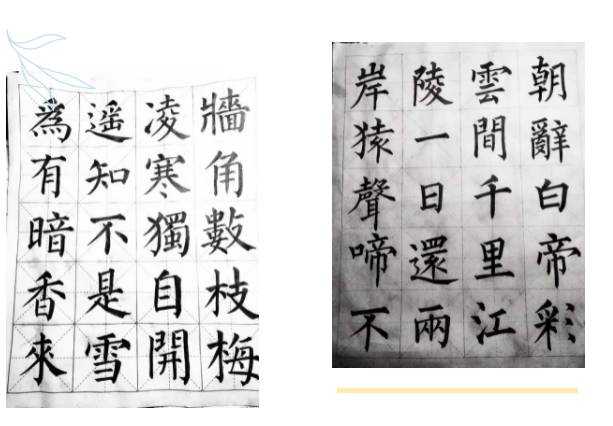 牆角數枝梅
凌寒獨自開
遥知不是雪
為有暗香來
朝辭白帝彩
雲間千里江
陵一日還兩
岸猿聲啼不